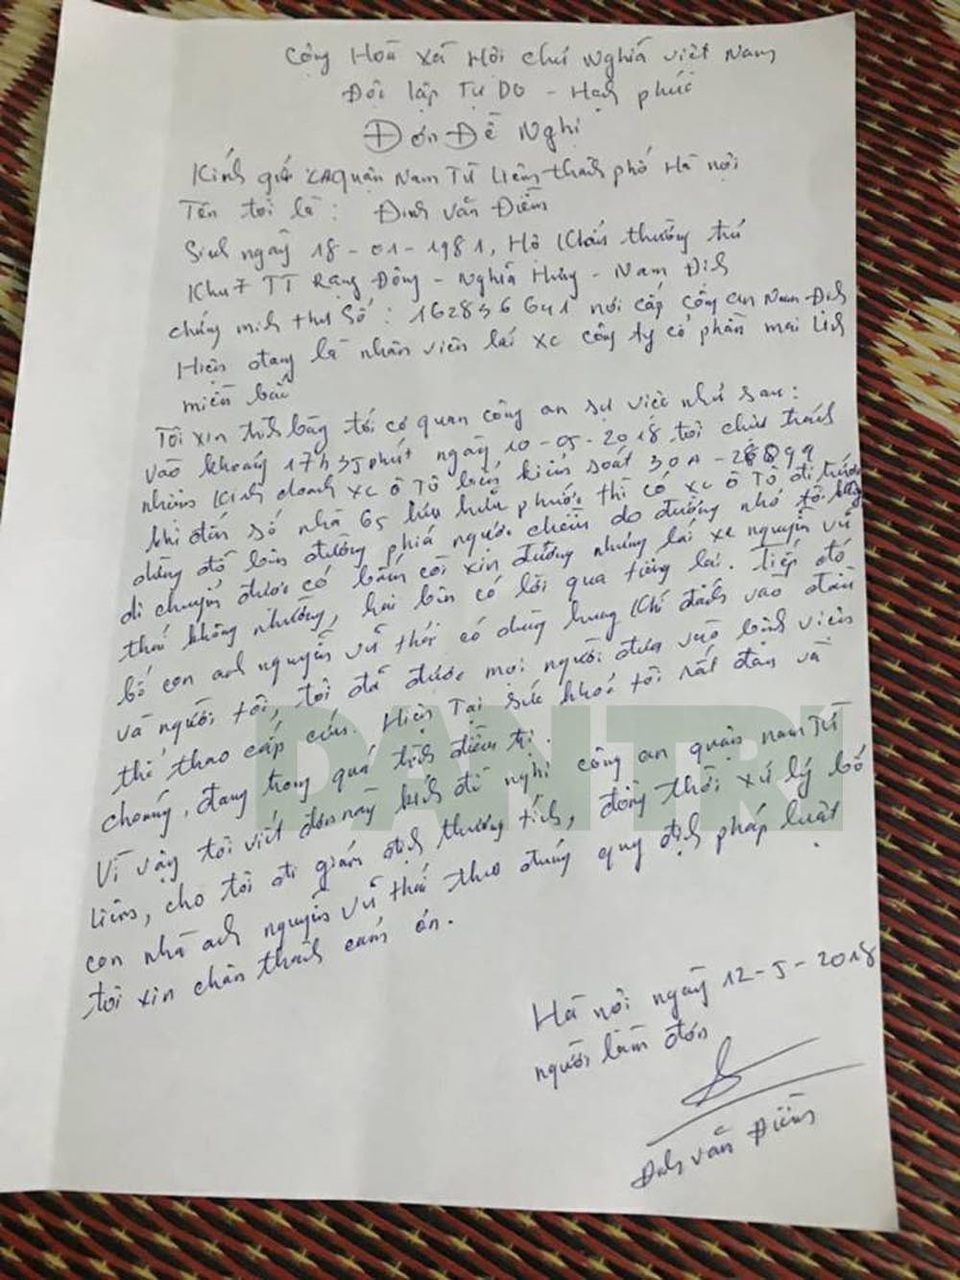 Cộng Hoà Xã Hội chủ Nghĩa Việt Nam
Độc lập Tự Do - Hạnh phúc
Đơn Đề Nghị
Kính gửi CA Quận Nam Từ Liêm thành phố Hà nội
Tên tôi là : Đinh Văn Điềm
Sinh ngày 18 - 01 - 1981, Hộ Khẩu thường trú
Khu 7 TT Rạng Đông - Nghĩa Hưng - Nam Định
chứng minh thư số : 162836641 nơi cấp công an Nam Định
Hiện đang là nhân viên lái xe công ty cổ phần mai linh
miền bắc
Tôi xin trình bày tới cơ quan công an sự việc như sau :
vào khoảng 17h35 phút ngày 10-05-2018 tôi chịu trách
nhiệm kinh doanh xe ô tô biển kiểm soát 30A-
khi đến số nhà 65 lưu hữu phước thì có xe ô tô đi trước
dừng đỗ bên đường phía ngược chiều do đường nhỏ tôi không
di chuyển được có bấm còi xin đường nhưng lái xe nguyễn vũ
thái không nhường, hai bên có lời qua tiếng lại. Tiếp đó
bố con anh nguyễn vũ thái có dùng hung khí đánh vào đầu
và người tôi, tôi đã được mọi người đưa vào bệnh viện
thể thao cấp cứu. Hiện Tại sức khoẻ tôi rất đau và
choáng, đang trong quá trình điều trị.
Vì vậy tôi viết đơn này kính đề nghị công an quận nam Từ
liêm, cho tôi đi giám định thương tích, đồng thời xử lý bố
con nhà anh nguyễn vũ thái theo đúng quy định pháp luật
tôi xin chân thành cảm ơn.
Hà nội ngày 12-5-2018
người làm đơn
Đinh Văn Điềm
DANTRI